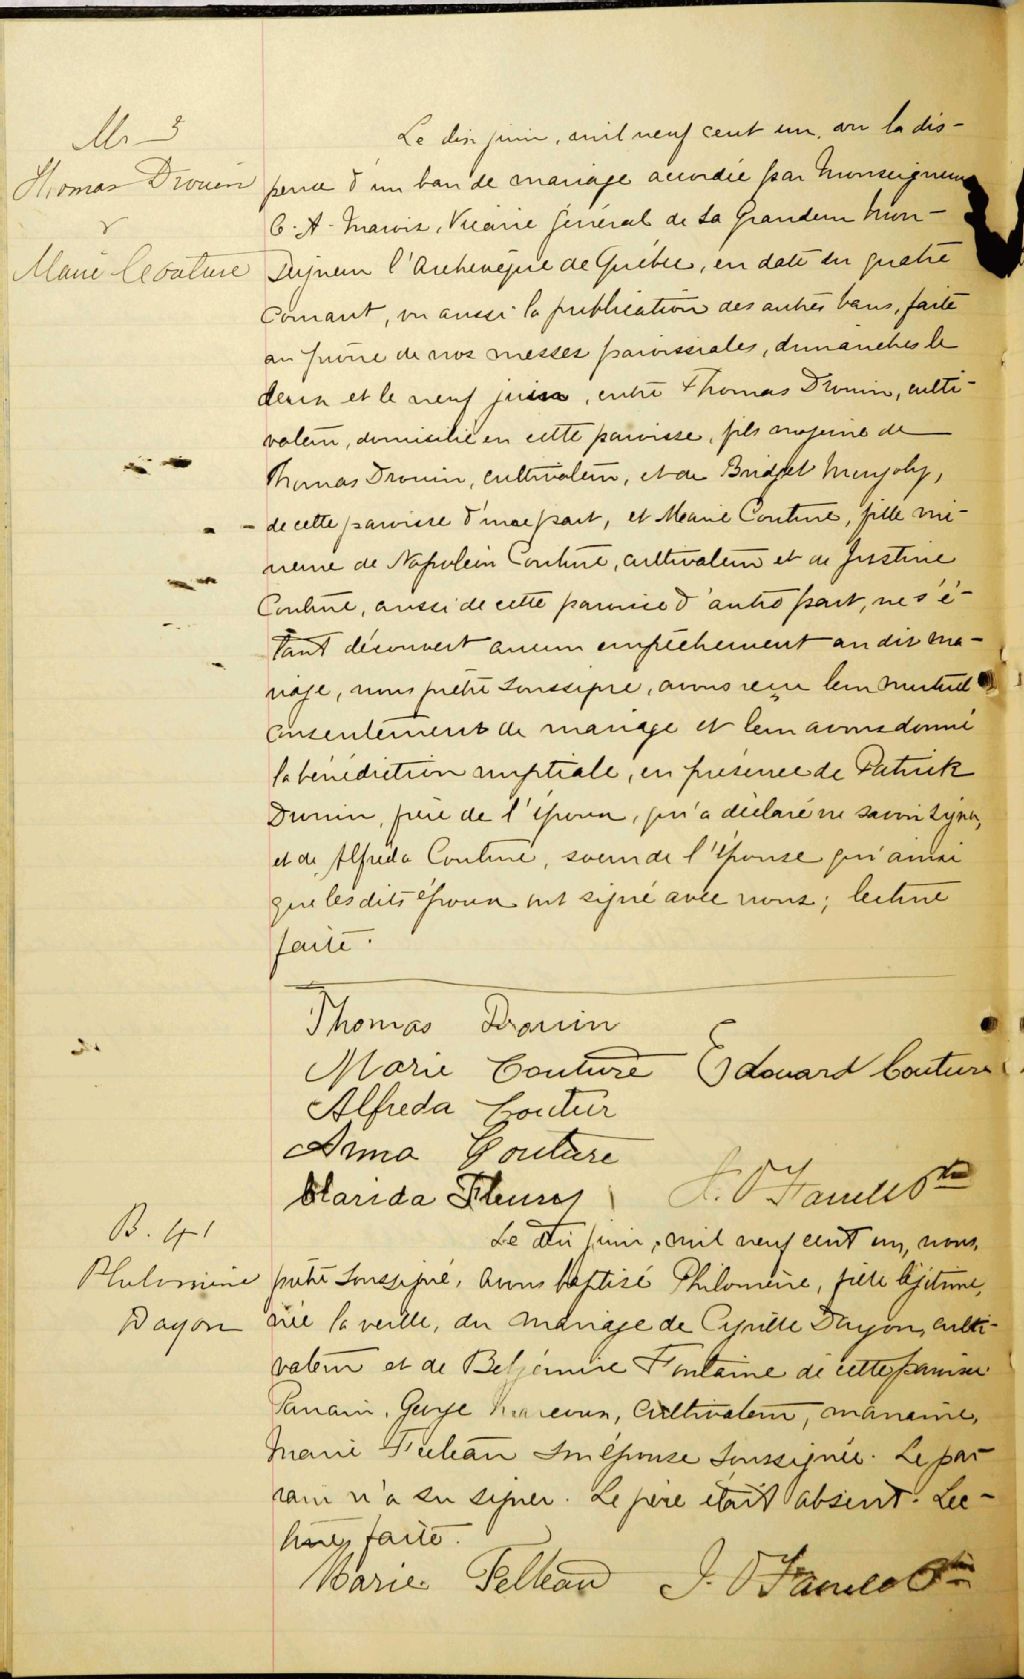 M. 3
Thomas Drouin
&
Marie Couture
Le dix juin, mil neuf cent un, vu la dis-
pense d'un ban de mariage accordée par Monseigneur
C. A. Marois, Vicaire Général de Sa Grandeur Mon-
seigneur l'Archevêque de Québec, en date du quatre
courant, vu aussi la publication des autres bans, faite
au prône de nos messes paroissiales, dimanches le
deux et le neuf juin, entre Thomas Drouin, culti-
vateur, domicilié en cette paroisse, fils majeur de
Thomas Drouin, cultivateur, et de Bridget
de cette paroisse d'une part, et Marie Couture, fille mi-
neure de Napoléon Couture, cultivateur et de Justine
Couture, aussi de cette paroisse d'autre part, ne s'é-
tant découvert aucun empêchement au dit ma-
riage, nous prêtre soussigné, avons reçu leur mutuel
consentement de mariage et leur avons donné
la bénédiction nuptiale, en présence de Patrick
Drouin, frère de l'époux, qui a déclaré ne savoir signer,
et de Alfréda Couture, soeur de l'épouse qui ainsi
que les dits époux ont signé avec nous; lecture
faite.
Thomas Drouin
Marie Couture Edouard Couture
Alfreda Coutur
Anna Couture
Clarida Fleury J. O'Farrell Ptre
B. 41
Philomène
Dayon
Le dix juin, mil neuf cent un, nous,
prêtre soussigné, avons baptisé Philomène, fille légitime,
née la veille, du mariage de Cyrille Dayon, culti-
vateur et de Belzémire Fontaine de cette paroisse
Parrain, George Marcoux, cultivateur, marraine,
Marie Feuteau son épouse soussignée. Le par-
rain n'a su signer. Le père était absent. Lec-
ture faite.
Marie Felteau J. O'Farrell Ptre